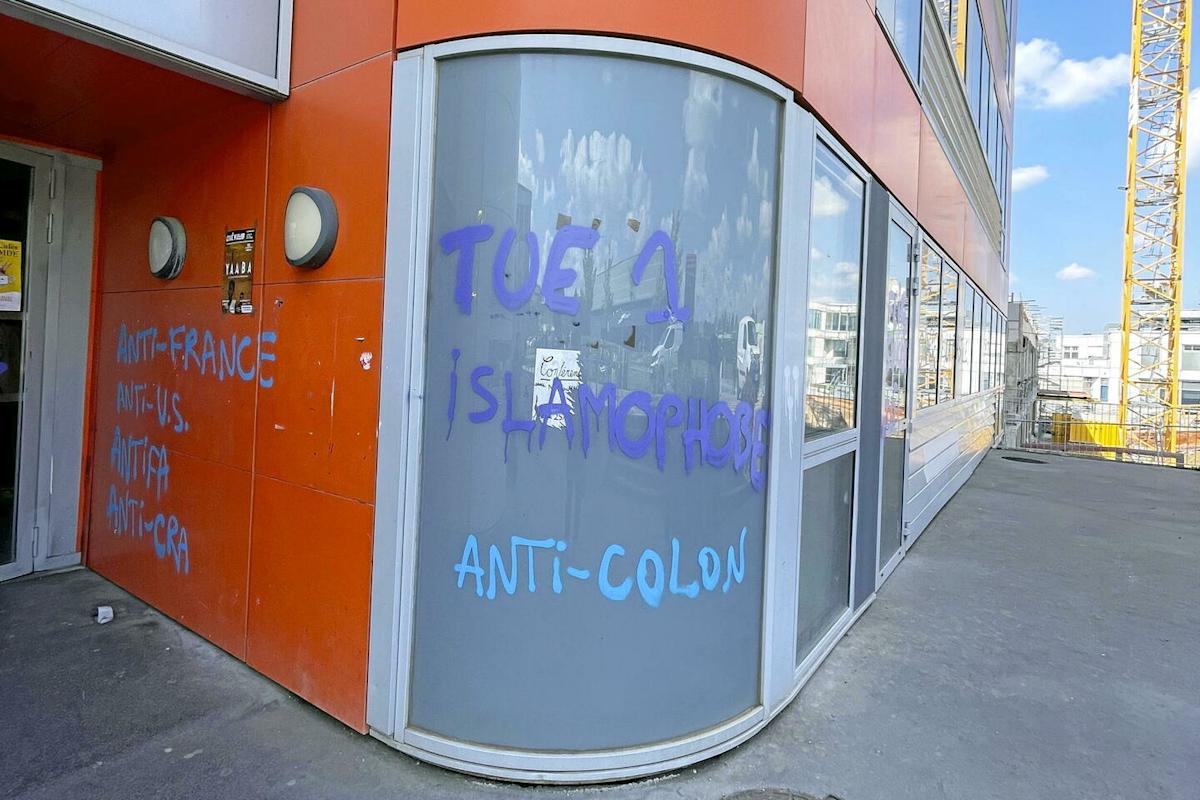 YAABA
ANTI-FRANCE
ANTI-U.S.
ANTIFA
ANTI-CRA
TUE 1
Conféren
iSLAMOPHOBE
ANTI-COLON